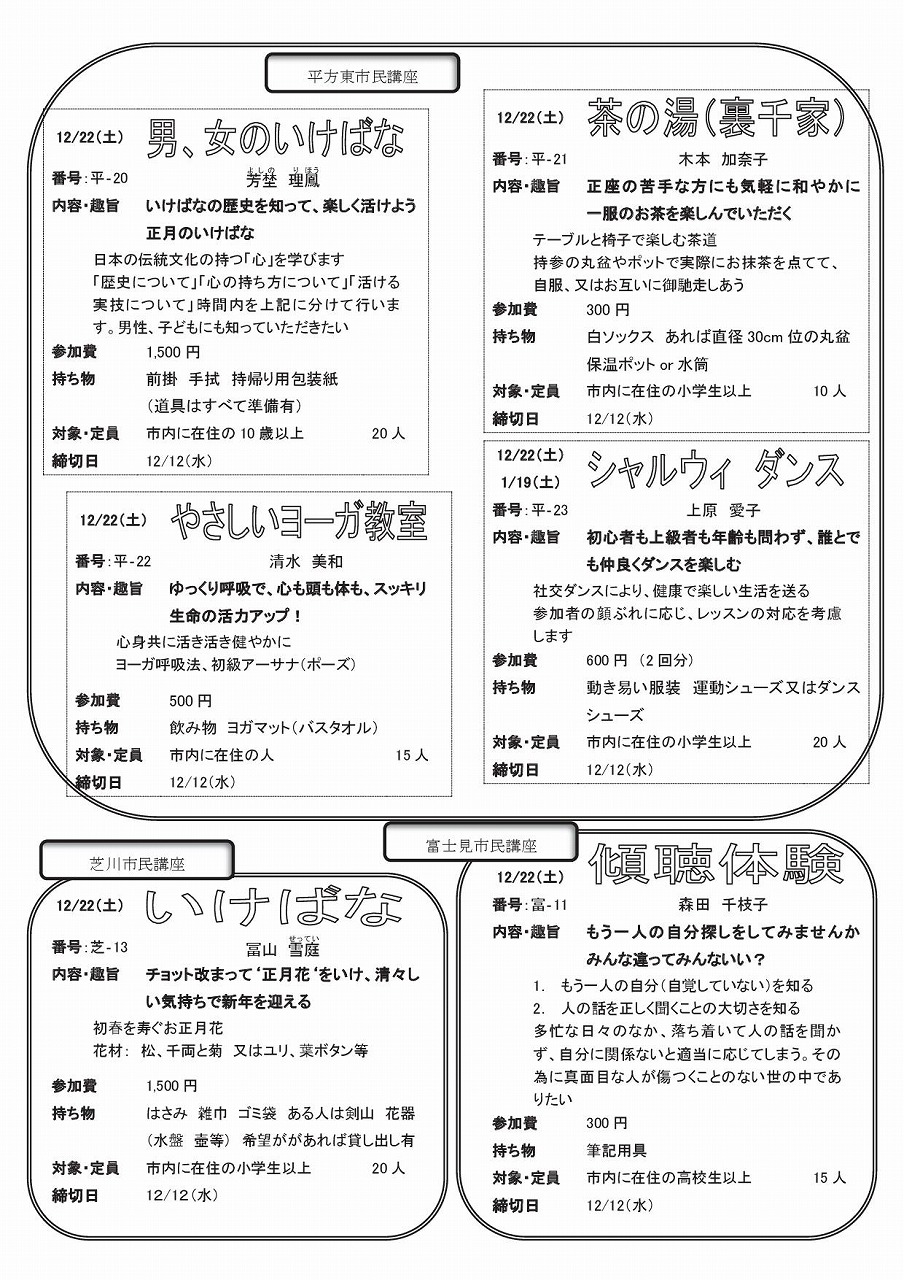 平方東市民講座
12/22(土) 男、女のいけばな
番号:平-20 芳埜 理鳳
よしの りほう
内容・趣旨 いけばなの歴史を知って、楽しく活けよう
正月のいけばな
日本の伝統文化の持つ「心」を学びます
「歴史について」「心の持ち方について」「活ける
実技について」時間内を上記に分けて行いま
す。男性、子どもにも知っていただきたい
参加費 1,500 円
持ち物 前掛 手拭 持帰り用包装紙
(道具はすべて準備有)
対象・定員 市内に在住の 10 歳以上 20 人
締切日 12/12(水)
12/22(土) やさしいヨーガ教室
番号:平-22 清水 美和
内容・趣旨 ゆっくり呼吸で、心も頭も体も、スッキリ
生命の活力アップ!
心身共に活き活き健やかに
ヨーガ呼吸法、初級アーサナ(ポーズ)
参加費 500 円
持ち物 飲み物 ヨガマット(バスタオル)
対象・定員 市内に在住の人 15 人
締切日 12/12(水)
12/22(土) 茶の湯(裏千家)
番号:平-21 木本 加奈子
内容・趣旨 正座の苦手な方にも気軽に和やかに
一服のお茶を楽しんでいただく
テーブルと椅子で楽しむ茶道
持参の丸盆やポットで実際にお抹茶を点てて、
自服、又はお互いに御馳走しあう
参加費 300 円
持ち物 白ソックス あれば直径 30cm 位の丸盆
保温ポット or 水筒
対象・定員 市内に在住の小学生以上 10 人
締切日 12/12(水)
12/22(土)
1/19(土) シャルウィ ダンス
番号:平-23 上原 愛子
内容・趣旨 初心者も上級者も年齢も問わず、誰とで
も仲良くダンスを楽しむ
社交ダンスにより、健康で楽しい生活を送る
参加者の顔ぶれに応じ、レッスンの対応を考慮
します
参加費 600 円 (2 回分)
持ち物 動き易い服装 運動シューズ又はダンス
シューズ
対象・定員 市内に在住の小学生以上 20 人
締切日 12/12(水)
芝川市民講座
12/22(土) いけばな
番号:芝-13 冨山 雪庭
せってい
内容・趣旨 チョット改まって‘正月花‘をいけ、清々し
い気持ちで新年を迎える
初春を寿ぐお正月花
花材: 松、千両と菊 又はユリ、葉ボタン等
参加費 1,500 円
持ち物 はさみ 雑巾 ゴミ袋 ある人は剣山 花器
(水盤 壺等) 希望ががあれば貸し出し有
対象・定員 市内に在住の小学生以上 20 人
締切日 12/12(水)
富士見市民講座
12/22(土) 傾聴体験
番号:富-11 森田 千枝子
内容・趣旨 もう一人の自分探しをしてみませんか
みんな違ってみんないい?
1. もう一人の自分(自覚していない)を知る
2. 人の話を正しく聞くことの大切さを知る
多忙な日々のなか、落ち着いて人の話を聞か
ず、自分に関係ないと適当に応じてしまう。その
為に真面目な人が傷つくことのない世の中であ
りたい
参加費 300 円
持ち物 筆記用具
対象・定員 市内に在住の高校生以上 15 人
締切日 12/12(水)